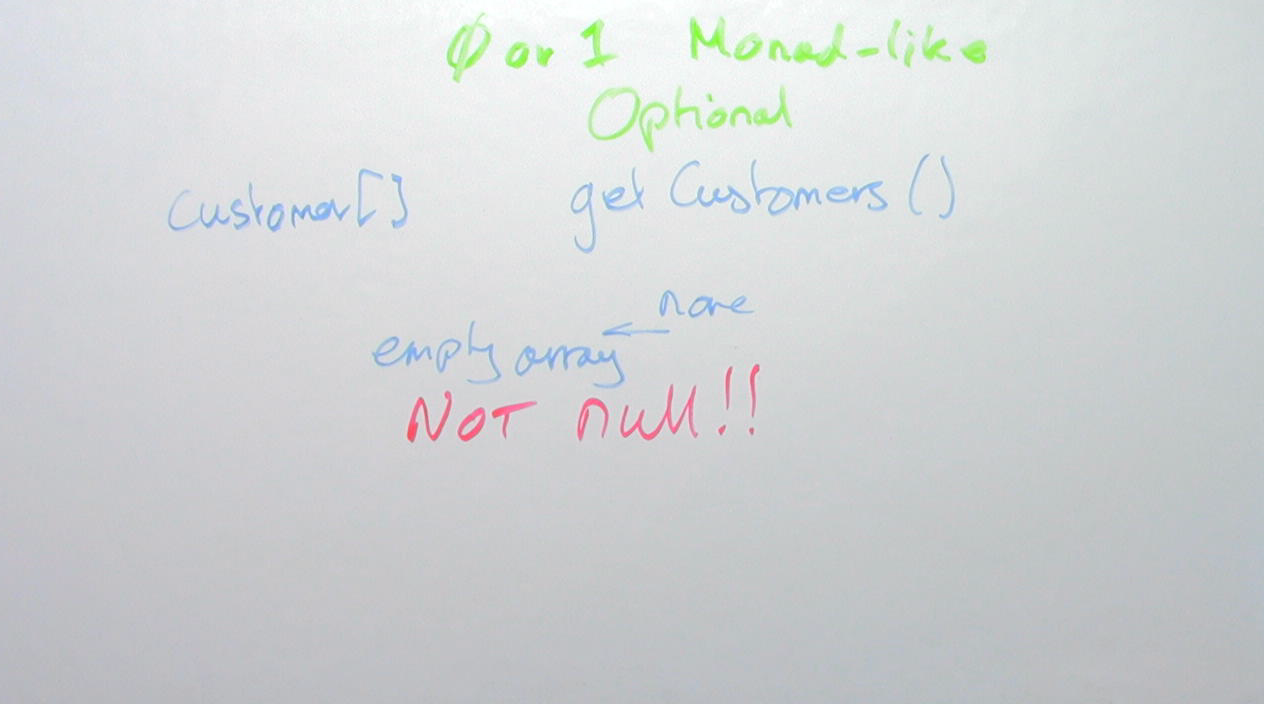 0 or 1 Monad-like
Optional
Customer[] getCustomers()
none
empty array ←
NOT null!!